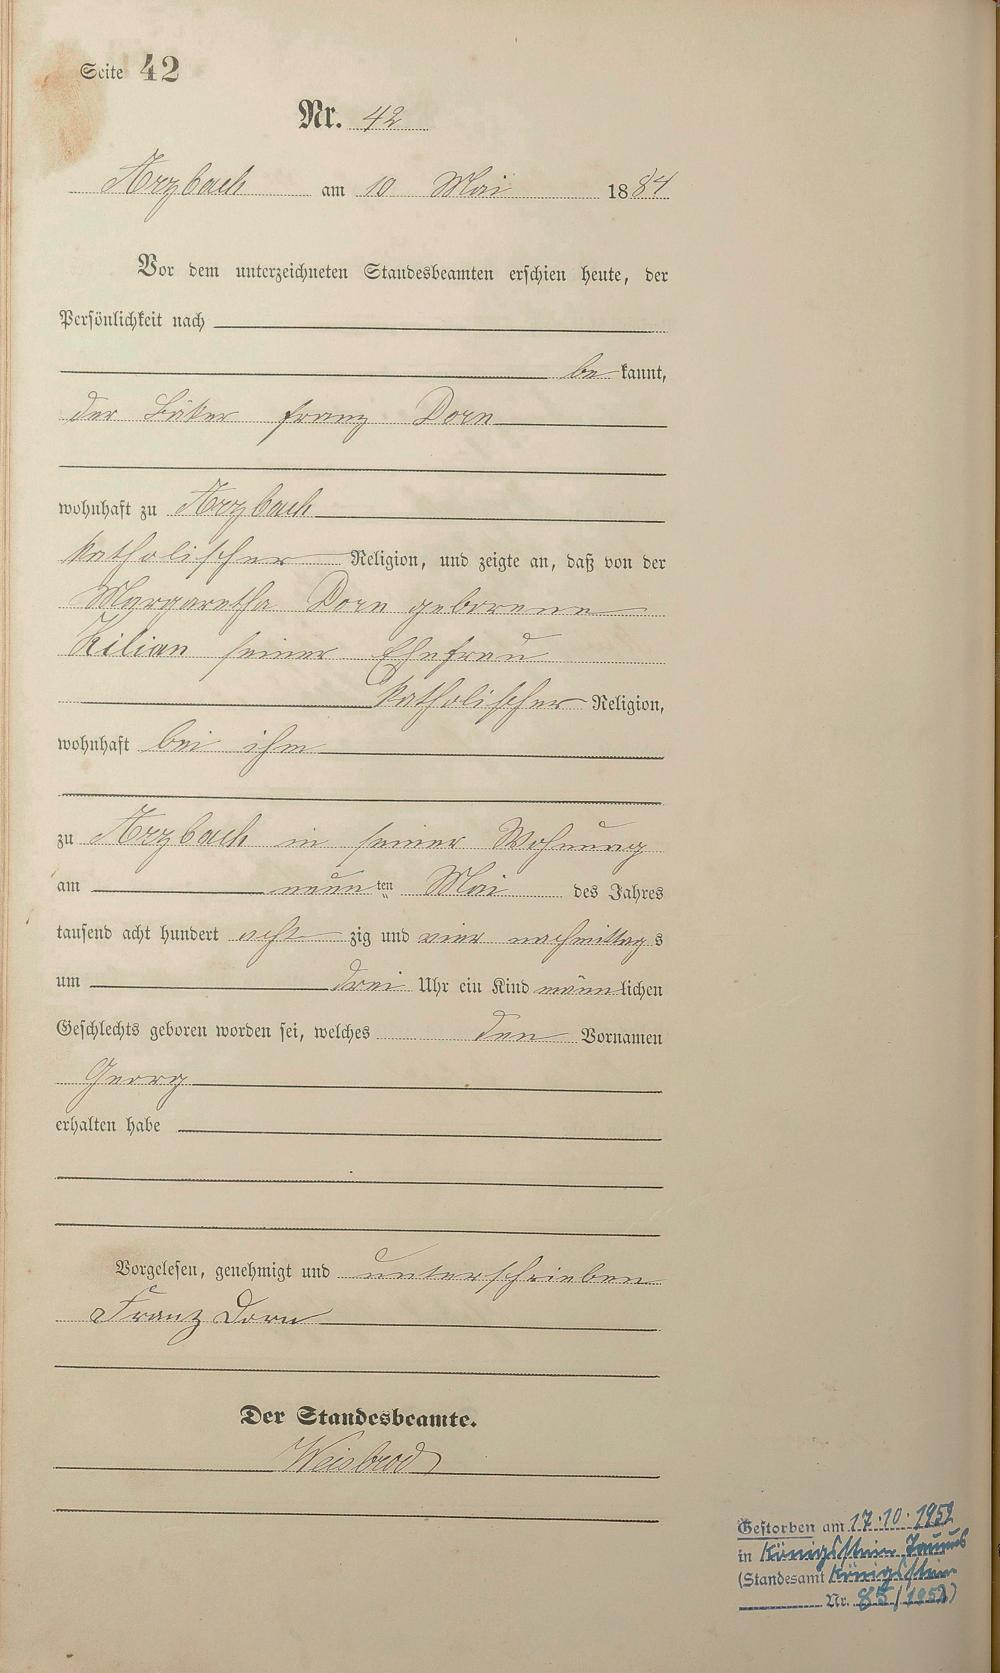 Seite 42
Nr. 42
Arzbach am 10 Mai 1884
Vor dem unterzeichneten Standesbeamten erschien heute, der
Persönlichkeit nach
be kannt,
der Bäker Franz Dorn
wohnhaft zu Arzbach
katholischer Religion, und zeigte an, daß von der
Margaretha Dorn geborene
Kilian seiner Ehefrau
katholischer Religion,
wohnhaft bei ihm
zu Arzbach in seiner Wohnung
am neun ten Mai des Jahres
tausend acht hundert acht zig und vier nachmittags
um drei Uhr ein Kind männlichen
Geschlechts geboren worden sei, welches den Vornamen
Georg
erhalten habe
Vorgelesen, genehmigt und unterschrieben
Franz Dorn
Der Standesbeamte.
Weisbrod
Gestorben am 17.10.1952
in Königstein Taunus
(Standesamt Königstein
Nr. 85/1952)